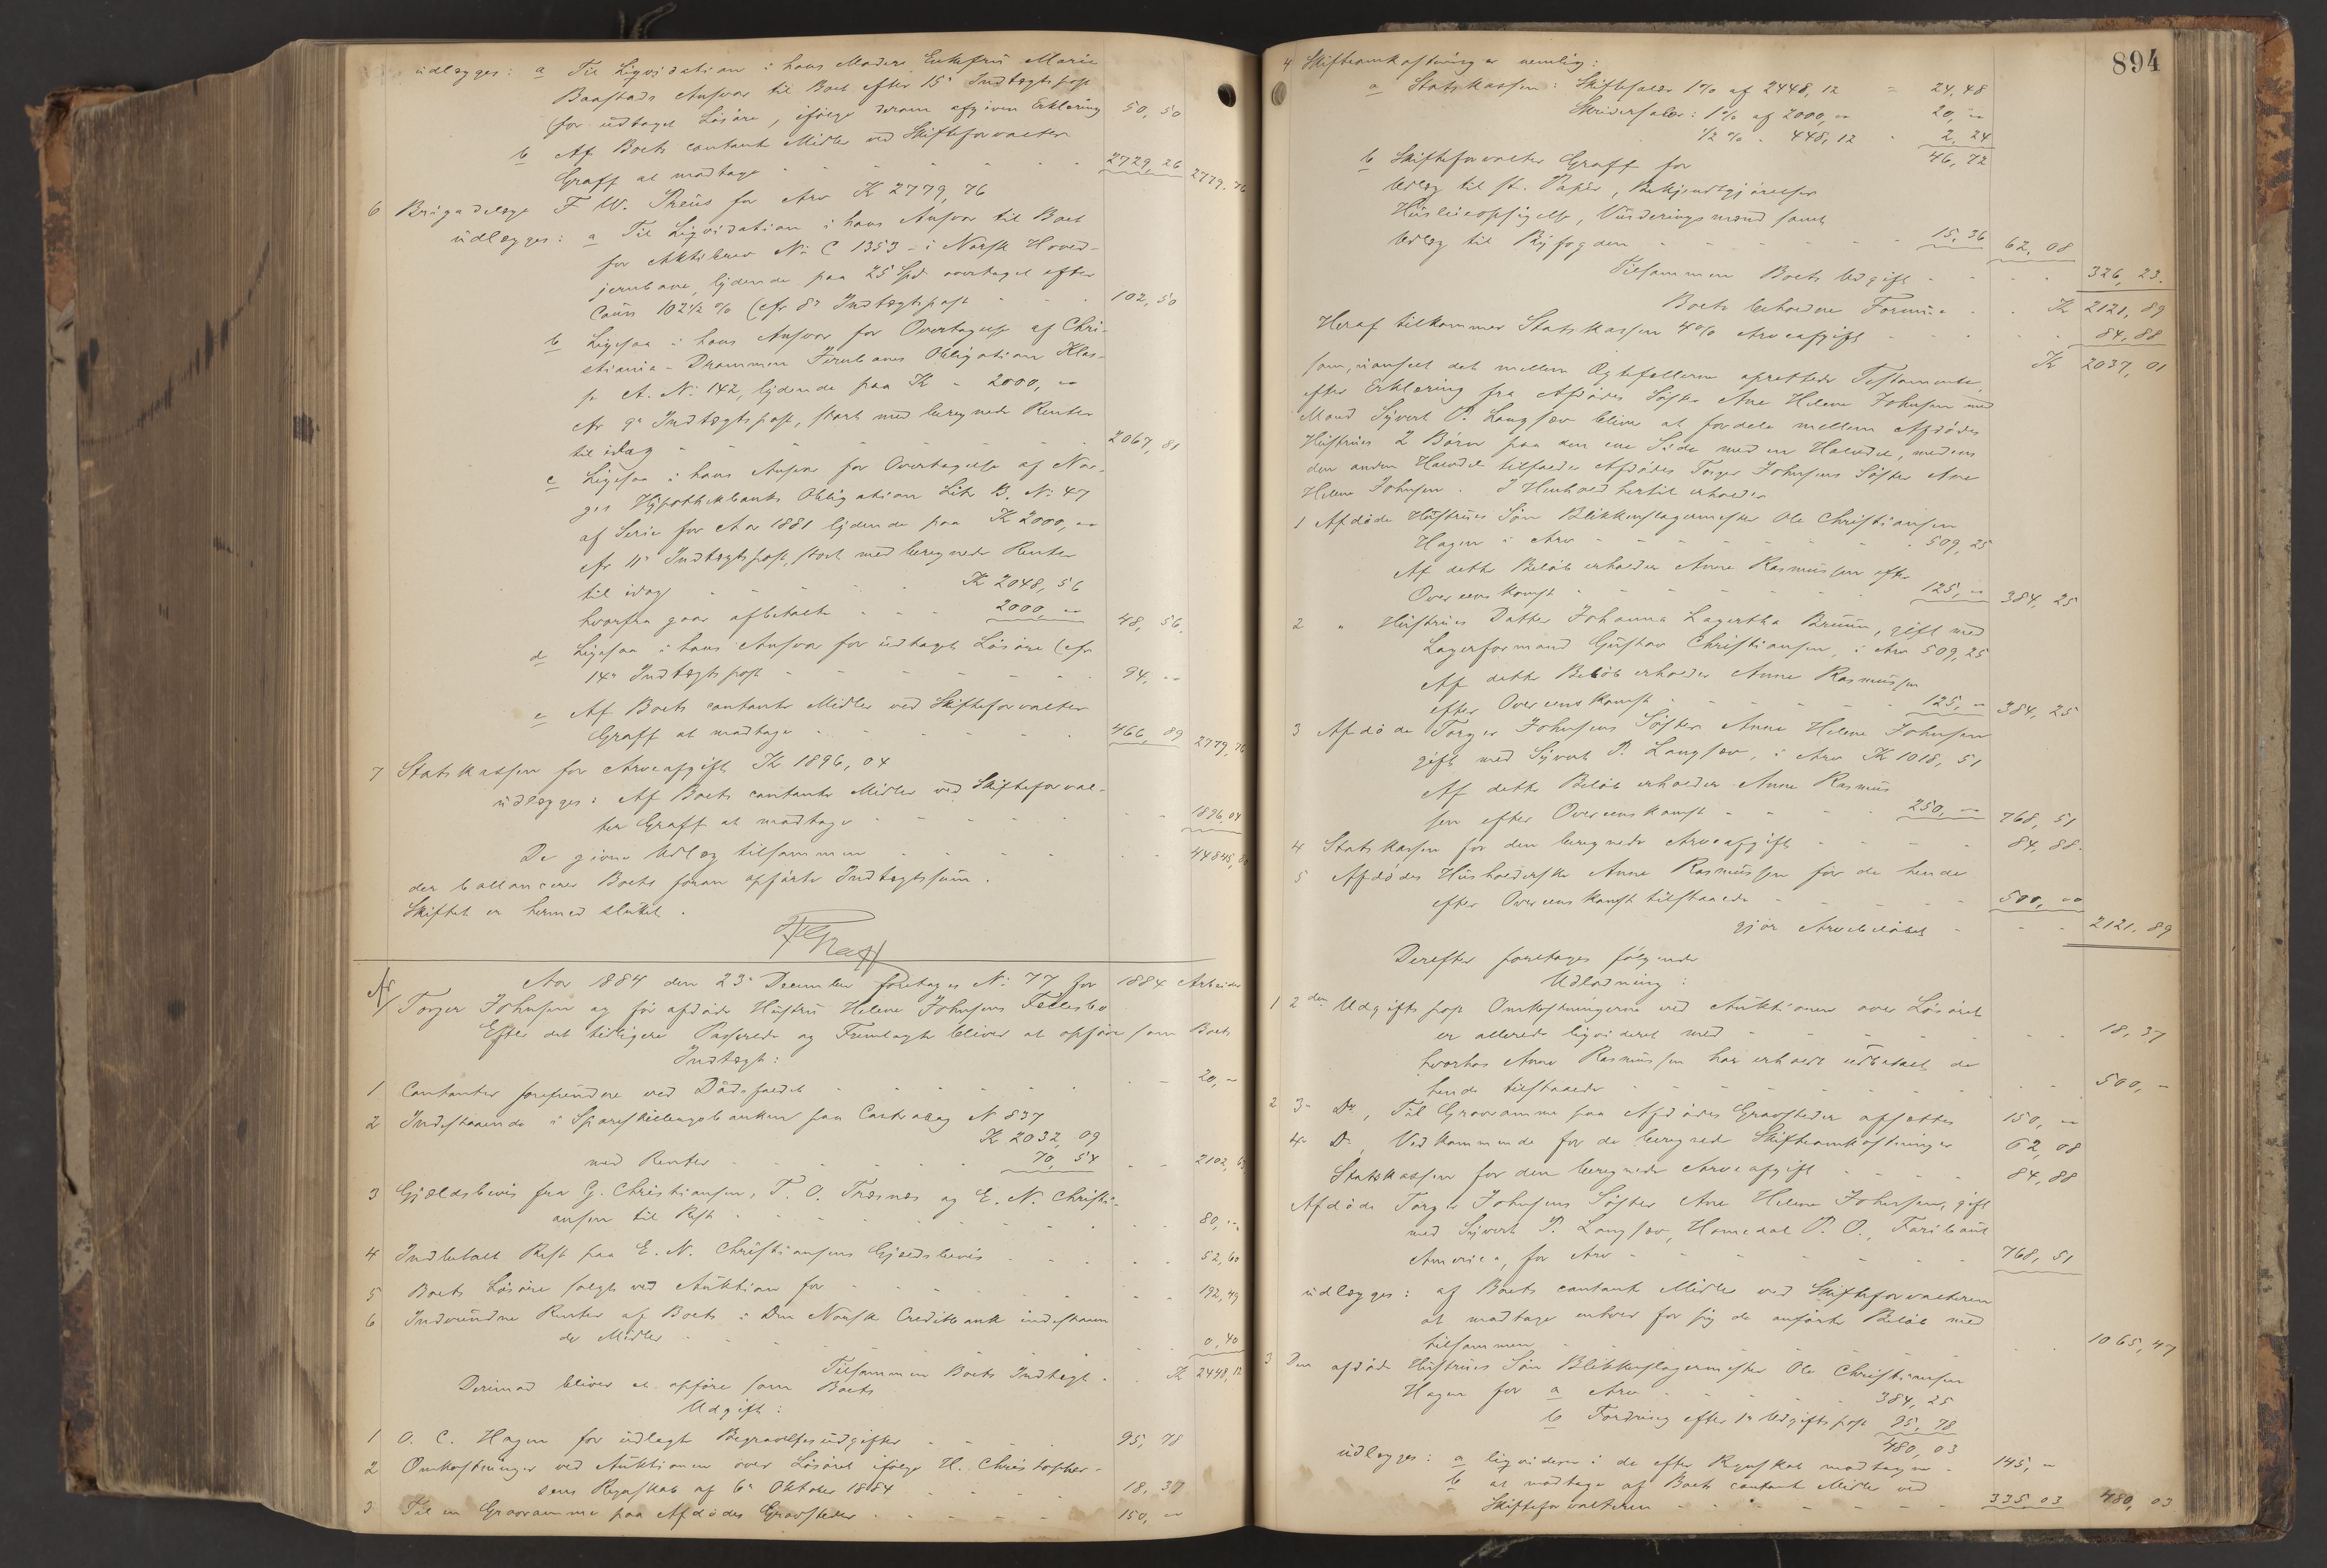 udlægges: a Til Liqvidation i hans Moders Enkefru Marie
Baastads Ansvar til Boet efter 15de Indtægtspost
for udtaget Løsøre, ifølge derom afgiven Erklæring 50, 50
b Af Boets contante Midler ved Skifteforvalter
Graff at modtage - - - 2729, 26 2779, 76
6 Brigadelæge F W. Preus for Arv K 2779, 76
udlægges: a Til Liqvidation i hans Ansvar til Boet
for Aktiebrev No C 1353 - i Norsk Hoved-
jernbane, lydende paa 25 Spd overtaget efter
Cours 102 1/2 % (cfr 8de Indtægtspost - - 102, 50
b Ligesaa i hans Ansvar for Overtagelse af Chri-
stiania - Drammen Jernbanes Obligation Klas-
se A. No 142, lydende paa K 2000, "
cfr 9de Indtægtspost, stort med beregnede Renter
til idag - - - 2067, 81
c Ligesaa i hans Ansvar for Overtagelse af Nor-
ges Hypothekbanks Obligation Litr B. No 47
af Serie for Aar 1881 lydende paa K 2000, "
cfr 11te Indtægtspost, stort med beregnede Renter
til idag - - - K 2048, 56
hvorfra gaar afbetalt - - 2000, " 48, 56.
d Ligesaa i hans Ansvar for udtaget Løsøre (cfr
14de Indtægtspost - - - 94, "
e Af Boets contante Midler ved Skifteforvalter
Graff at modtage - - - 466, 89 2779, 76
7 Statskassen for Arveafgift K 1896, 04
udlægges: Af Boets contante Midler ved Skifteforval-
ter Graff at modtage - - - 1896, 04
De givne Udlæg tilsammen - - - 44845,
der ballancerer Boets foran opførte Indtægtssum.
Skiftet er hermed sluttet.
Graff
Aar 1884 den 23de December foretages No 77 for 1884 Arbeider
Torger Johnsen og før afdøde Hustru Helene Johnsens Fællesbo
Efter det tidligere Passerede og Fremlagte bliver at opføre som Boets
Indtægt:
1 Contanter forefundne ved Dødsfaldet - - - 20, "
2 Indestaaende i Spareskillingsbanken paa Contrabog No 837
K 2032, 09
med Renter - - - 70, 54 - - 2102, 63
3 Gjældsbevis fra G. Christiansen, T. O. Træsnæs og E. N. Christi-
ansen til Rest - - - 80, "
4 Indbetalt Rest paa E. N. Christiansens Gjældsbevis - - - 52, 60
5 Boets Løsøre solgt ved Auktion for - - - 192, 49
6 Indvundne Renter af Boets i Den Norske Creditbank indestaaen
de Midler - - - 0, 40
Tilsammen Boets Indtægt - K 2448, 12
Derimod bliver at opføre som Boets
Udgift:
1 O. C. Hagen for udlagte Begravelsesudgifter - - - 95, 78
2 Omkostninger ved Auktionen over Løsøret ifølge H. Christopher-
sens Regnskab af 6te Oktober 1884 - - - 18, 37
3 Til en Gravramme paa Afdødes Gravsteder - - - 150, "
894
4 Skifteomkostninger nemlig:
a Statskassen: Skiftesalær 1% af 2448, 12 = 24, 48
Skriversalær: 1% af 2000, " 20, "
1/2 % - 448, 12 - 2, 24
46, 72
b Skifteforvalter Graff for
Udlæg til st. Papir, Bekjendtgjørelser
Huslieopsigelse, Vurderingsmænd samt
Udlæg til Byfogden - - - 15, 36 62, 08
Tilsammen Boets Udgift - - - 326, 23.
Boets beholdne Formue - - K 2121, 89
Heraf tilkommer Statskassen 4% Arveafgift - - - 84, 88
K 2037, 01
som, uanseet det mellem Ægtefællerne oprettede Testamente,
efter Erklæring fra Afdødes Søster Ane Helene Johnsen med
Mand Syvert P. Langsæv bliver at fordele mellem Afdødes
Hustrues 2 Børn paa den ene Side med en Halvdel, medens
den anden Halvdel tilfalder Afdøde Torger Johnsens Søster Ane
Helene Johnsen. I Henhold hertil erholder
1 Afdøde Hustrues Søn Blikkenslagermester Ole Christiansen
Hagen i Arv - - - 509, 25
Af dette Beløb erholder Anne Rasmussen efter
Overenskomst - - - 125, " 384, 25
2 " Hustrues Datter Johanna Lagertha Bruun, gift med
Lagerformand Gustav Christiansen, i Arv 509, 25
Af dette Beløb erholder Anne Rasmussen
efter Overenskomst - - - 125, " 384, 25
3 Afdøde Torger Johnsens Søster Anne Helene Johnsen
gift med Syvert P. Langsæv, i Arv K 1018, 51
Af dette Beløb erholder Anne Rasmus
sen efter Overenskomst - - - 250, " 768, 51
4 Statskassen for den beregnede Arveafgift - - - 84, 88.
5 Afdødes Husholderske Anne Rasmussen for de hende
efter Overenskomst tilstaaede - - - 500, "
gjør Arvebeløbet - - - 2121, 89
Derefter foretages følgende
Udlodning:
1 2den Udgiftspost Omkostningerne ved Auktionen over Løsøret
er allerede liqvideret med - - - 18, 37
hvorhos Anne Rasmussen har erholdt udbetalt de
hende tilstaaede - - - 500, "
2 3de Do, Til Gravramme paa Afdødes Gravsteder afsættes 150, "
4de Do, Vedkommende for de beregnede Skifteomkostninger 62, 08
Statskassen for den beregnede Arveafgift - - - 84, 88
Afdøde Torger Johnsens Søster Ane Helene Johnsen, gift
med Syvert P. Langsæv, Homedal P. O., Faribault
America, for Arv - - - 768, 51
udlægges: af Boets contante Midler ved Skifteforvalteren
at modtage enhver for sig de anførte Beløb med
tilsammen - - - 1065, 47
3 Den afdøde Hustrues Søn Blikkenslagermester Ole Christiansen
Hagen for a Arv - - - 384, 25
b Fordring efter 1ste Udgiftspost 95, 78
480, 03
udlægges: a liqviderer i de efter Regnskab modtagne - 145, "
b at modtage af Boets contante Midler ved
Skifteforvalteren - - - 335, 03 480, 03